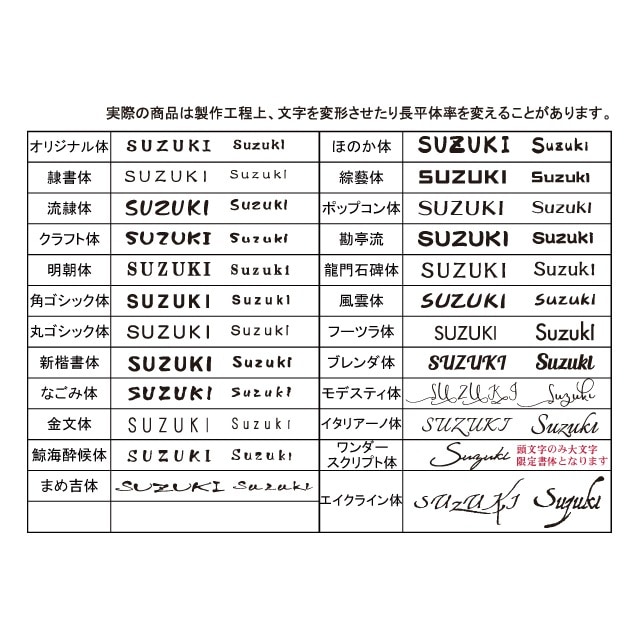 実際の商品は製作工程上、文字を変形させたり長平体率を変えることがあります。
オリジナル体 SUZUKI Suzuki
隷書体 SUZUKI Suzuki
流隷体 SUZUKI Suzuki
クラフト体 SUZUKI Suzuki
明朝体 SUZUKI Suzuki
角ゴシック体 SUZUKI Suzuki
丸ゴシック体 SUZUKI Suzuki
新楷書体 SUZUKI Suzuki
なごみ体 SUZUKI Suzuki
金文体 SUZUKI Suzuki
鯨海酔候体 SUZUKI Suzuki
まめ吉体 SUZUKI Suzuki
ほのか体 SUZUKI Suzuki
綜藝体 SUZUKI Suzuki
ポップコン体 SUZUKI Suzuki
勘亭流 SUZUKI Suzuki
龍門石碑体 SUZUKI Suzuki
風雲体 SUZUKI Suzuki
フーツラ体 SUZUKI Suzuki
ブレンダ体 SUZUKI Suzuki
モデスティ体 SUZUKI Suzuki
イタリアーノ体 SUZUKI Suzuki
ワンダー
スクリプト体 Suzuki
頭文字のみ大文字
限定書体となります
エイクライン体 SUZUKI Suzuki